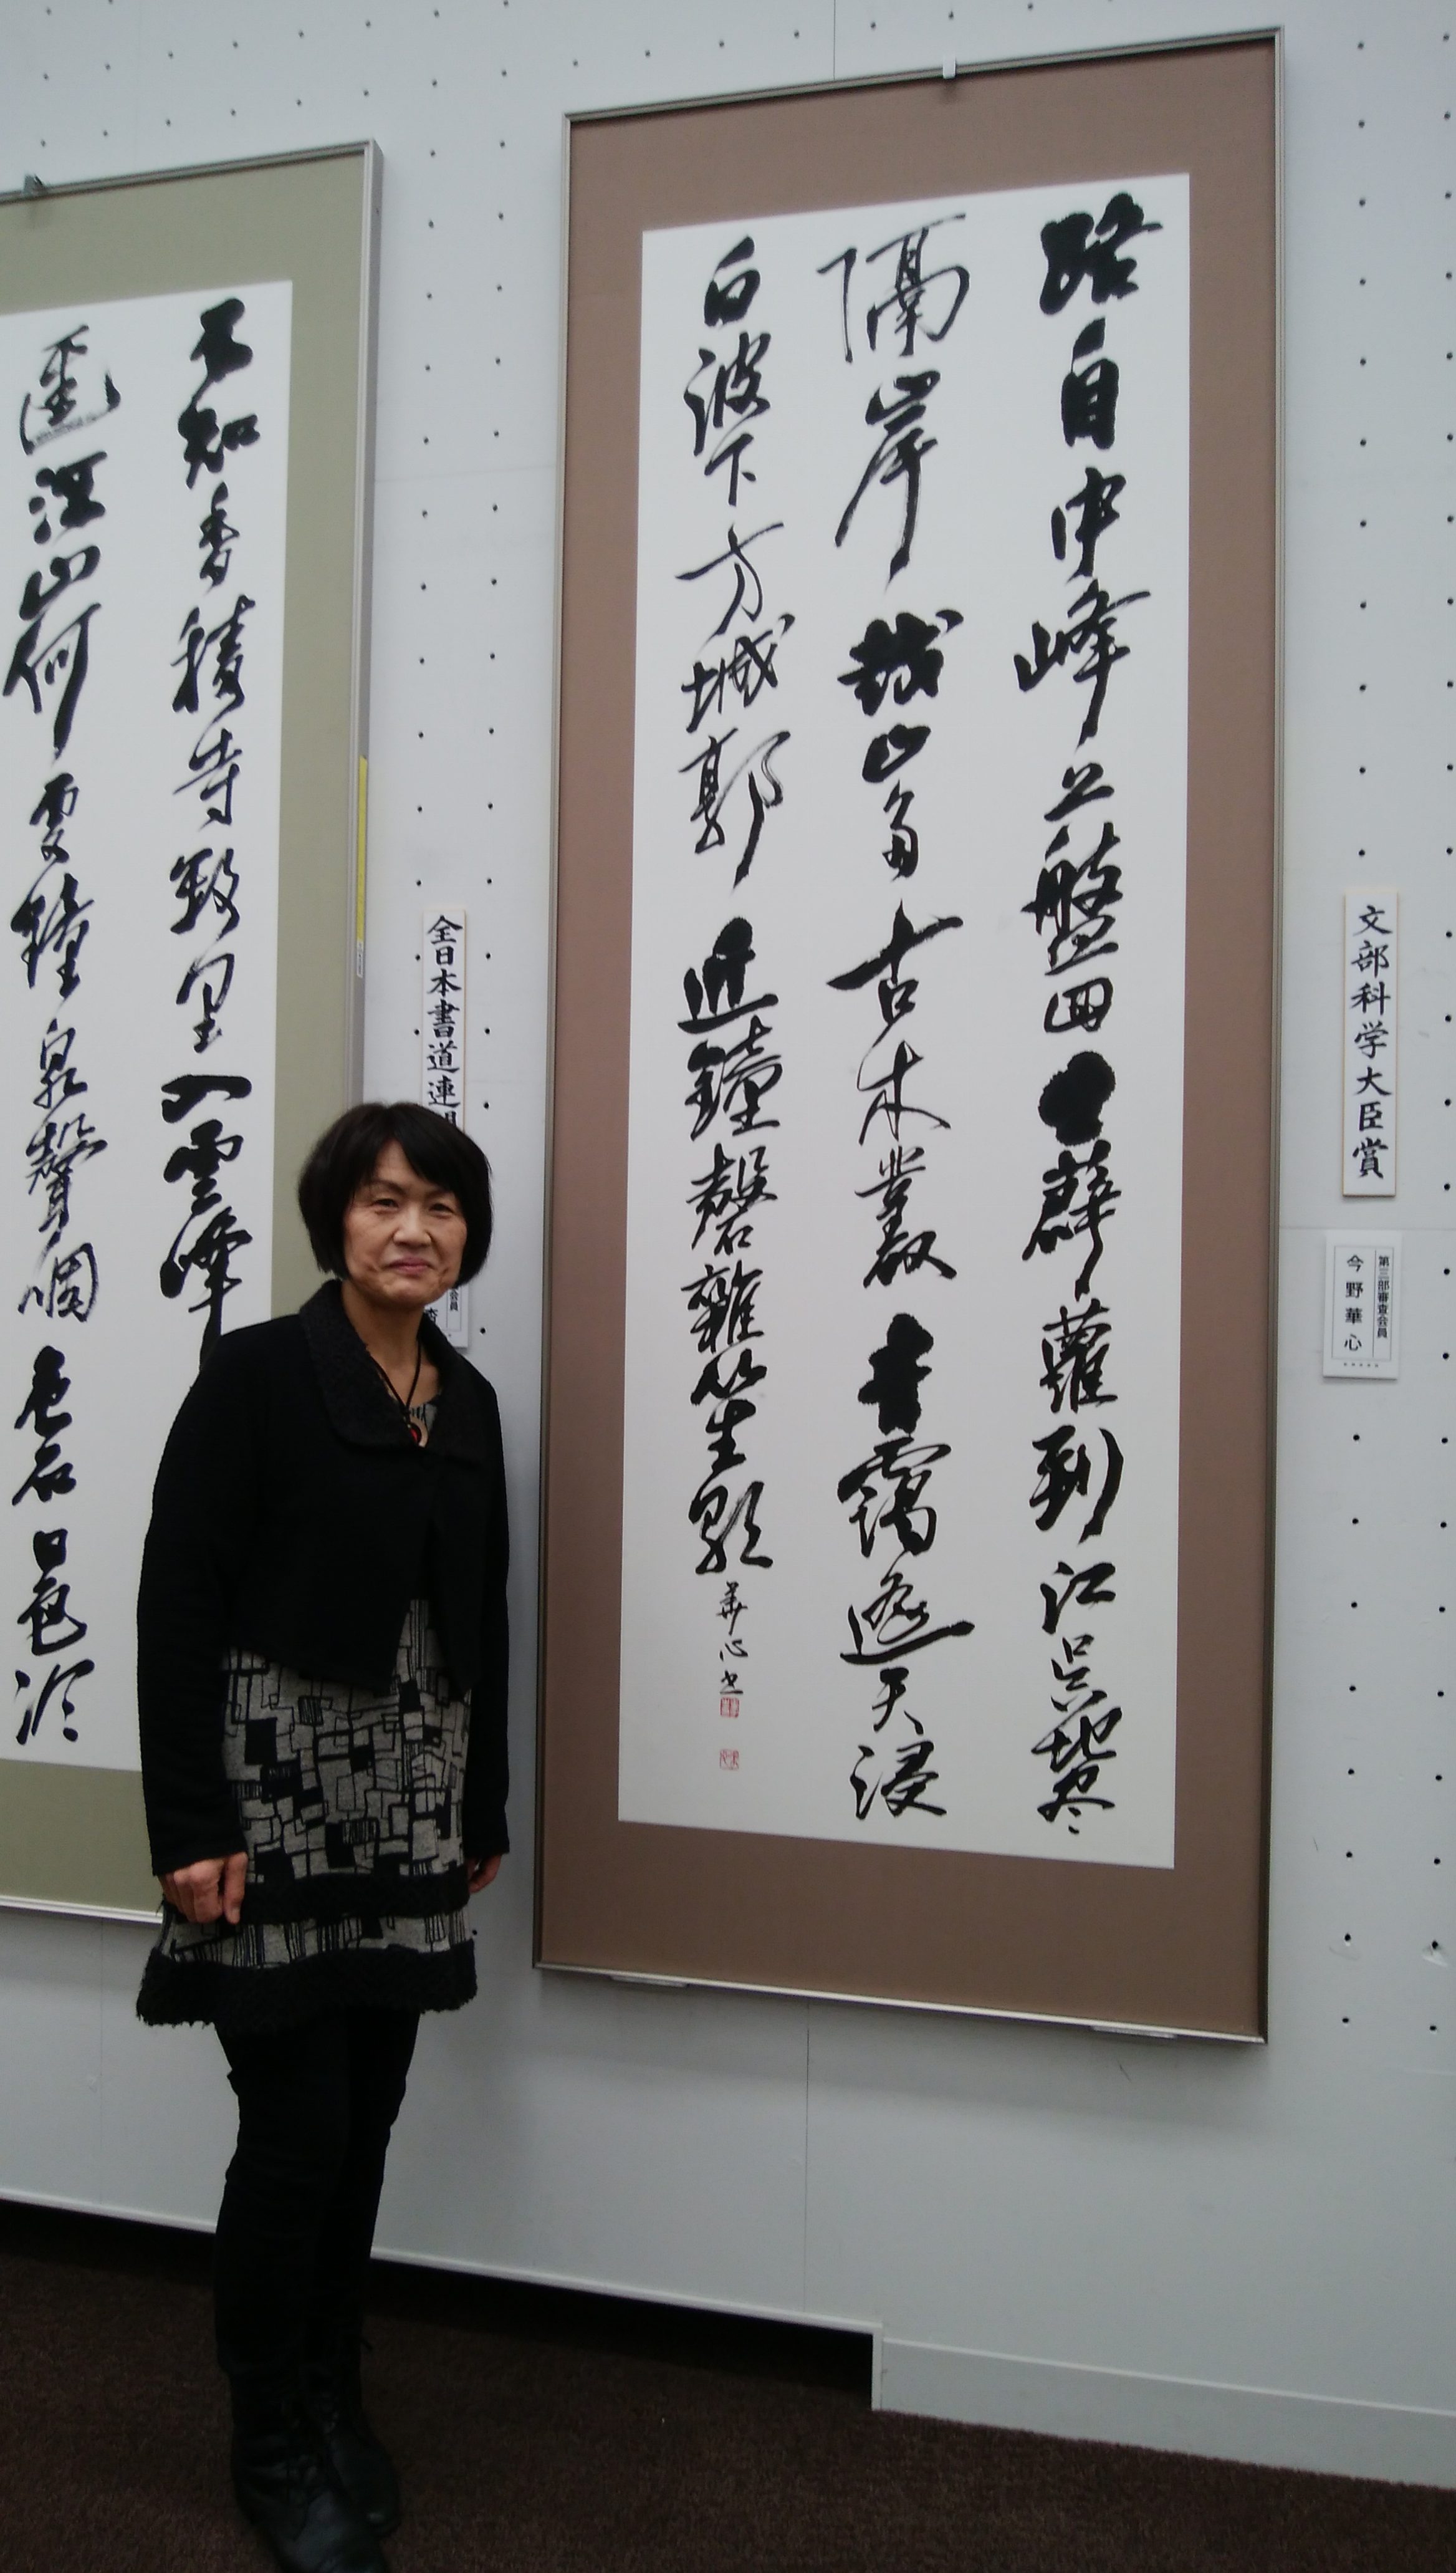 文部科学大臣賞
第三部審査会員
今野華心
路自中峰上盤回出薜蘿到江呉地尽
隔岸越山多古木叢青靄遥天浸
白波下方城郭近鐘磬雜笙歌
華心書
全日本書道連
会員
不知香積寺數里入雲峰
逕深山何處鐘泉聲咽危石日色冷